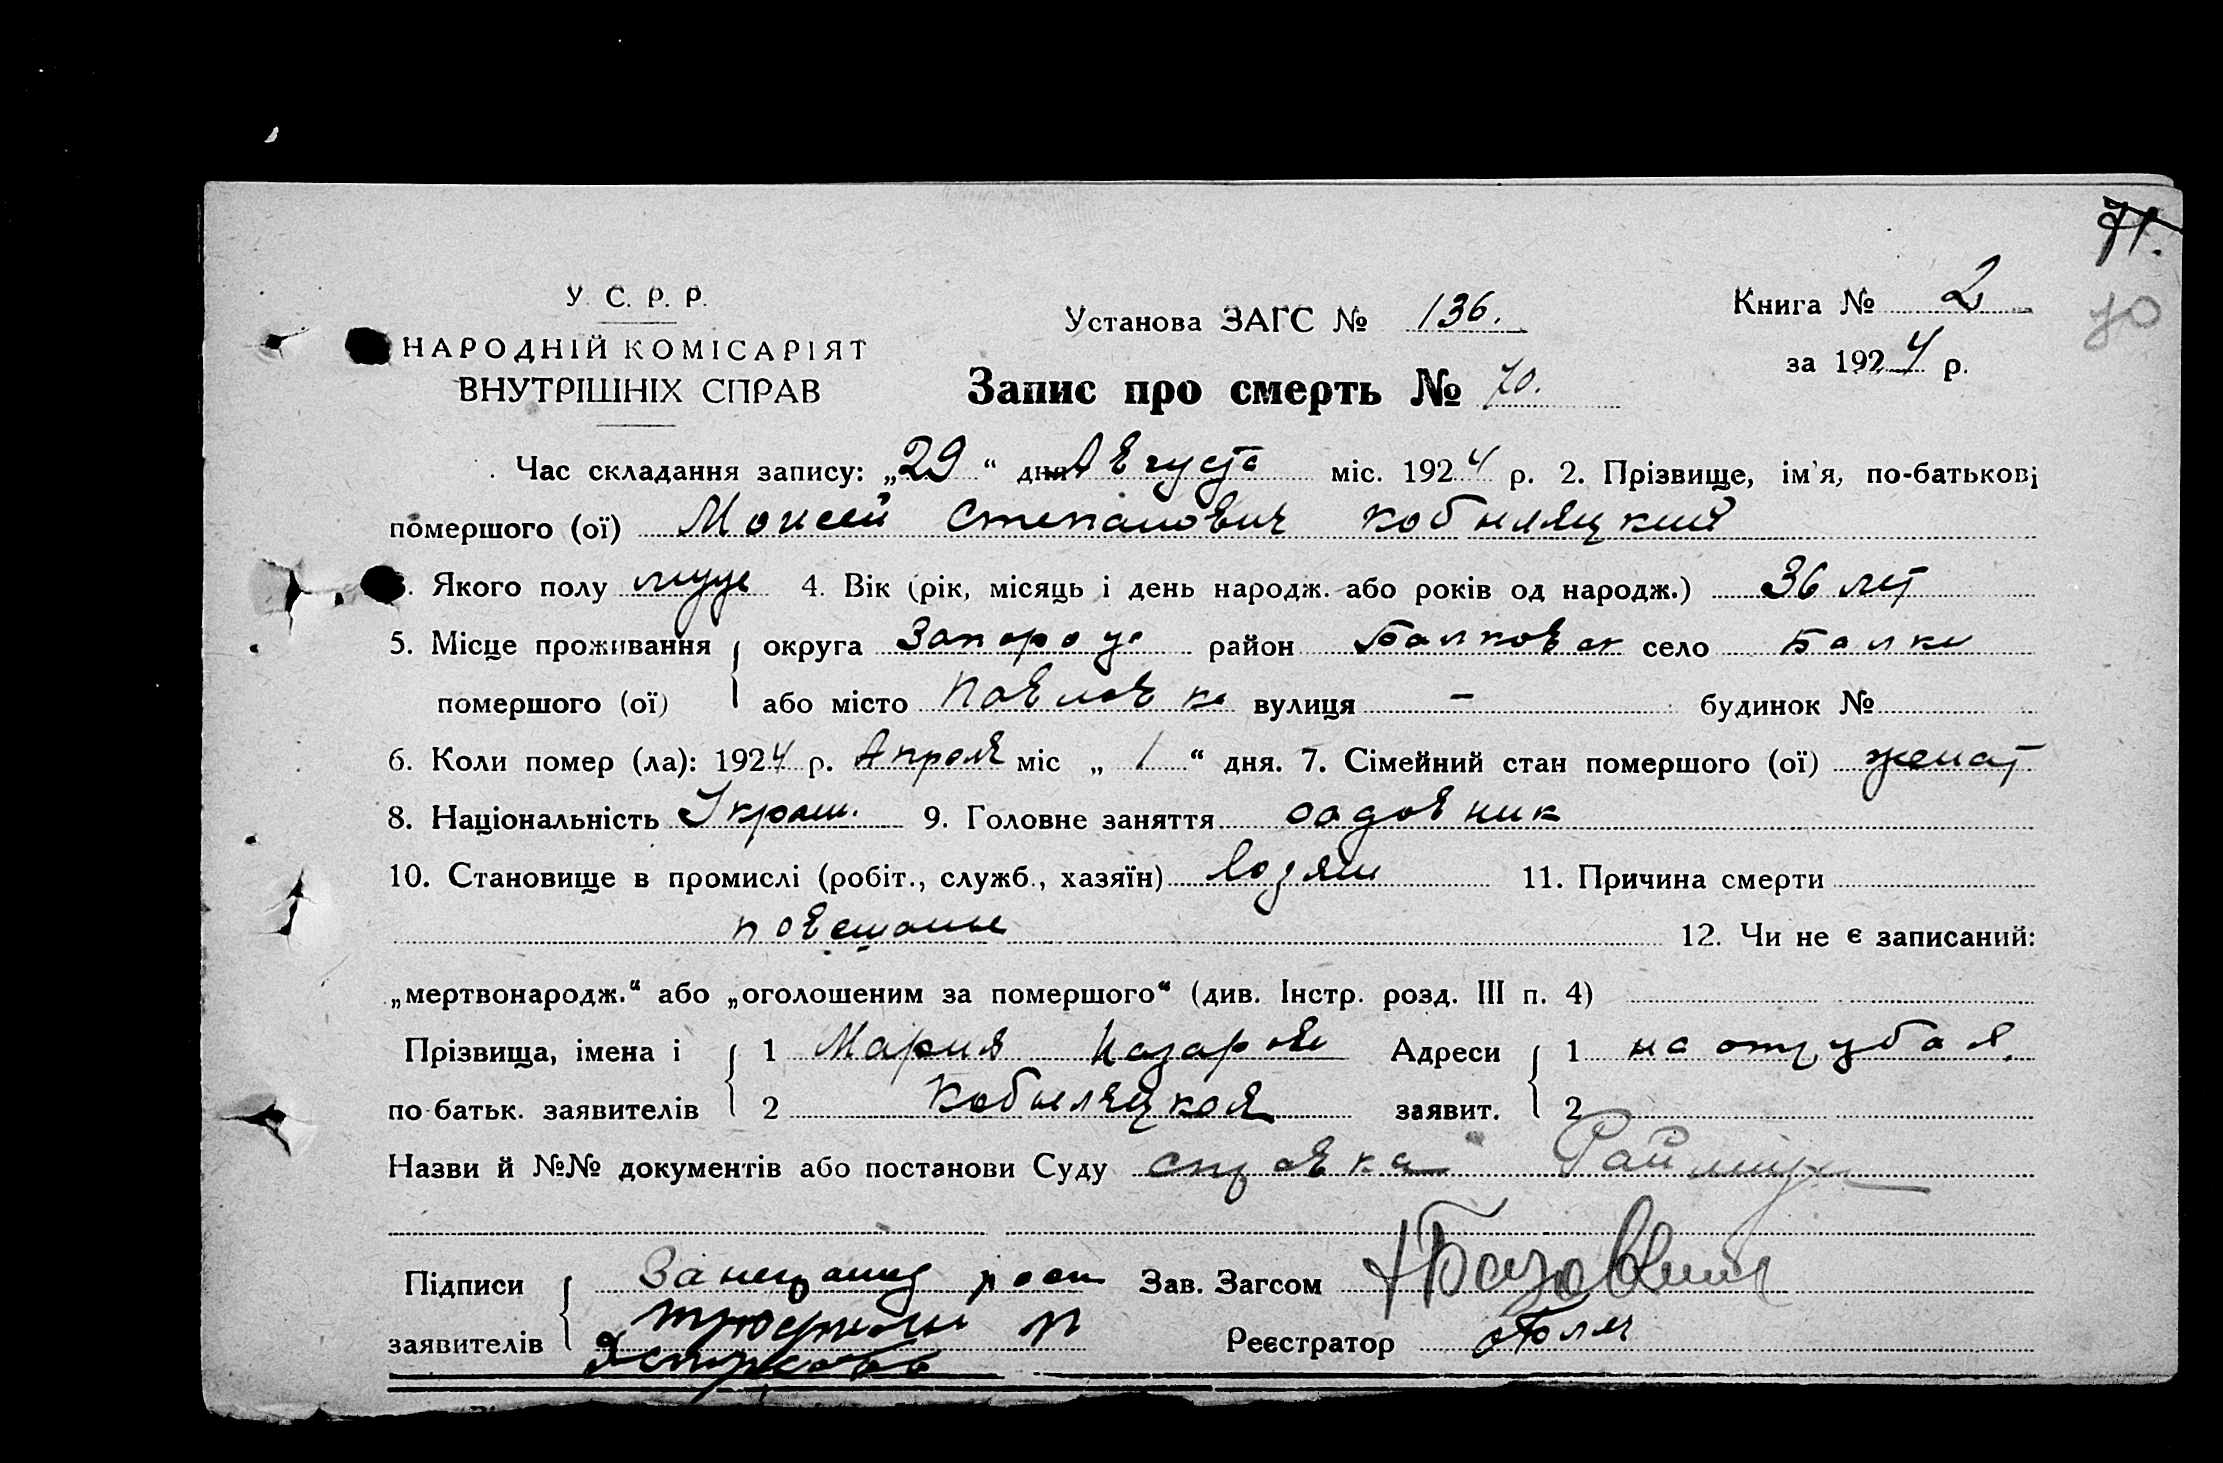 71.
70
У. С. Р. Р.
НАРОДНІЙ КОМІСАРІЯТ
ВНУТРІШНІХ СПРАВ
Установа ЗАГС № 136.
Книга № 2
за 1924 р.
Запис про смерть № 70.
Час складання запису: „29“ дня Августа міс. 1924 р. 2. Прізвище, ім'я, по-батькові
помершого (ої) Моисей Степанович Кобыляцкий
3. Якого полу муж 4. Вік (рік, місяць і день народж. або років од народж.) 36 лет
5. Місце проживання округа Запорож район Балковск село Балки
помершого (ої) або місто Павловка вулиця — будинок №
6. Коли помер (ла): 1924 р. Апреля міс „1“ дня. 7. Сімейний стан помершого (ої) женат
8. Національність Украин. 9. Головне заняття садовник
10. Становище в промислі (робіт., служб., хазяїн) Хозяин 11. Причина смерти
повешанье 12. Чи не є записаний:
„мертвонародж.“ або „оголошеним за помершого“ (див. Інстр. розд. III п. 4)
Прізвища, імена і 1 Мария Назаров Адреси 1 на отрубах
по батьк. заявителів 2 Кобыляцкая заявит. 2
Назви й №№ документів або постанови Суду справка
Підписи Зав. Загсом
заявителів Реєстратор